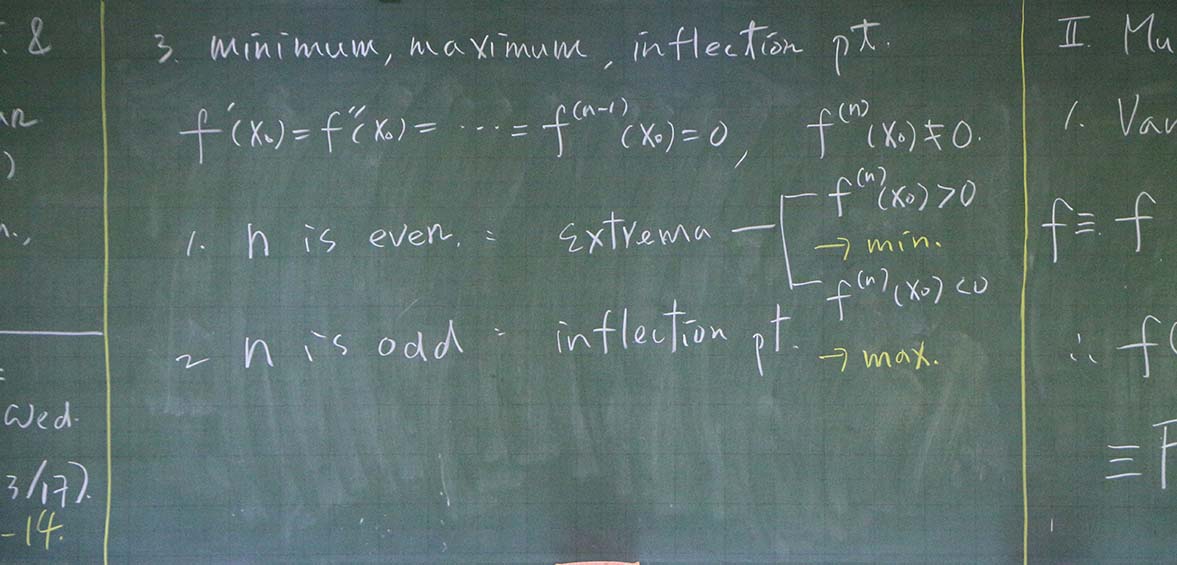 &
)
Wed.
3/17).
-14.
3. minimum, maximum, inflection pt.
f'(x₀) = f''(x₀) = ⋯ = f⁽ⁿ⁻¹⁾(x₀) = 0, f⁽ⁿ⁾(x₀) ≠ 0.
1. n is even. = Extrema
f⁽ⁿ⁾(x₀) > 0
→ min.
f⁽ⁿ⁾(x₀) < 0
→ max.
2 n is odd = inflection pt.
II. Mu
1. Van
f ≡ f
∴ f(
≡ F